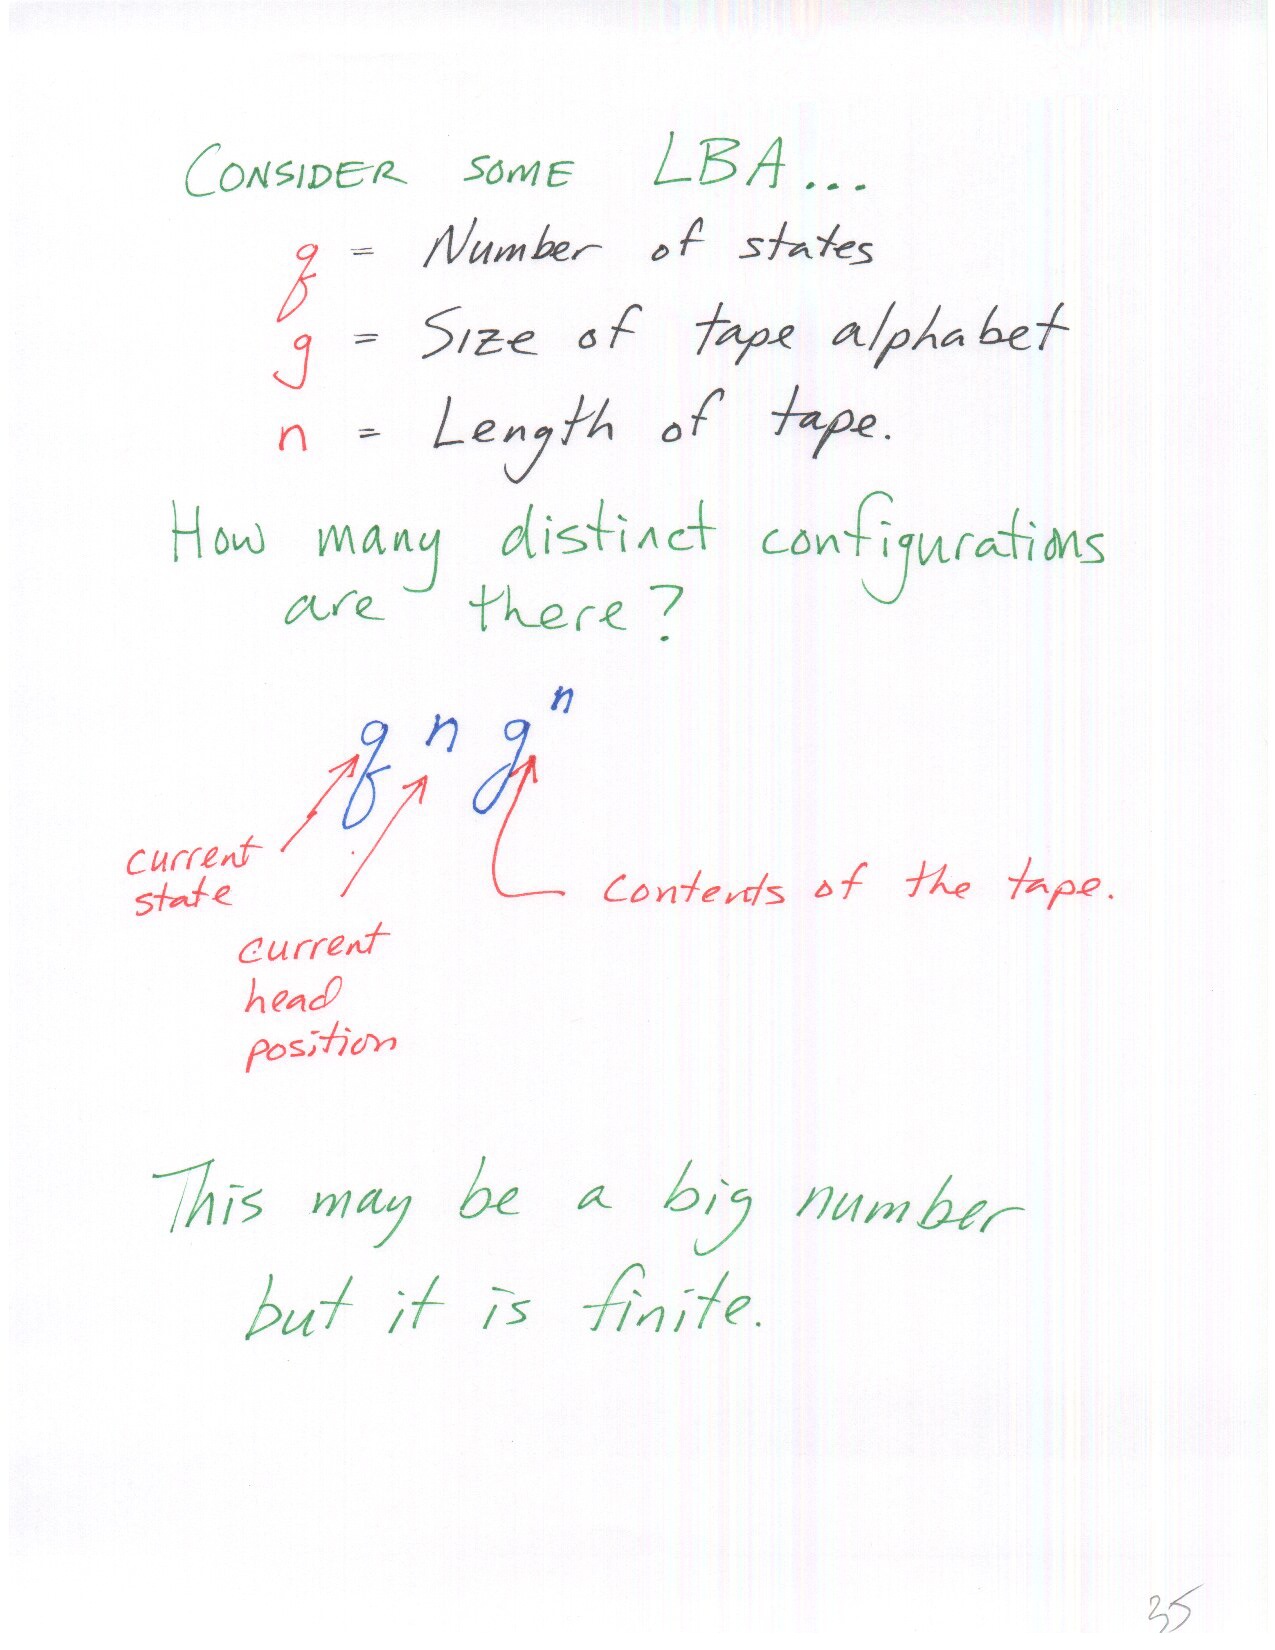 CONSIDER SOME LBA...
q = Number of states
g = Size of tape alphabet
n = Length of tape.
How many distinct configurations
are there?
q n gⁿ
current
state
contents of the tape.
current
head
position
This may be a big number
but it is finite.
35